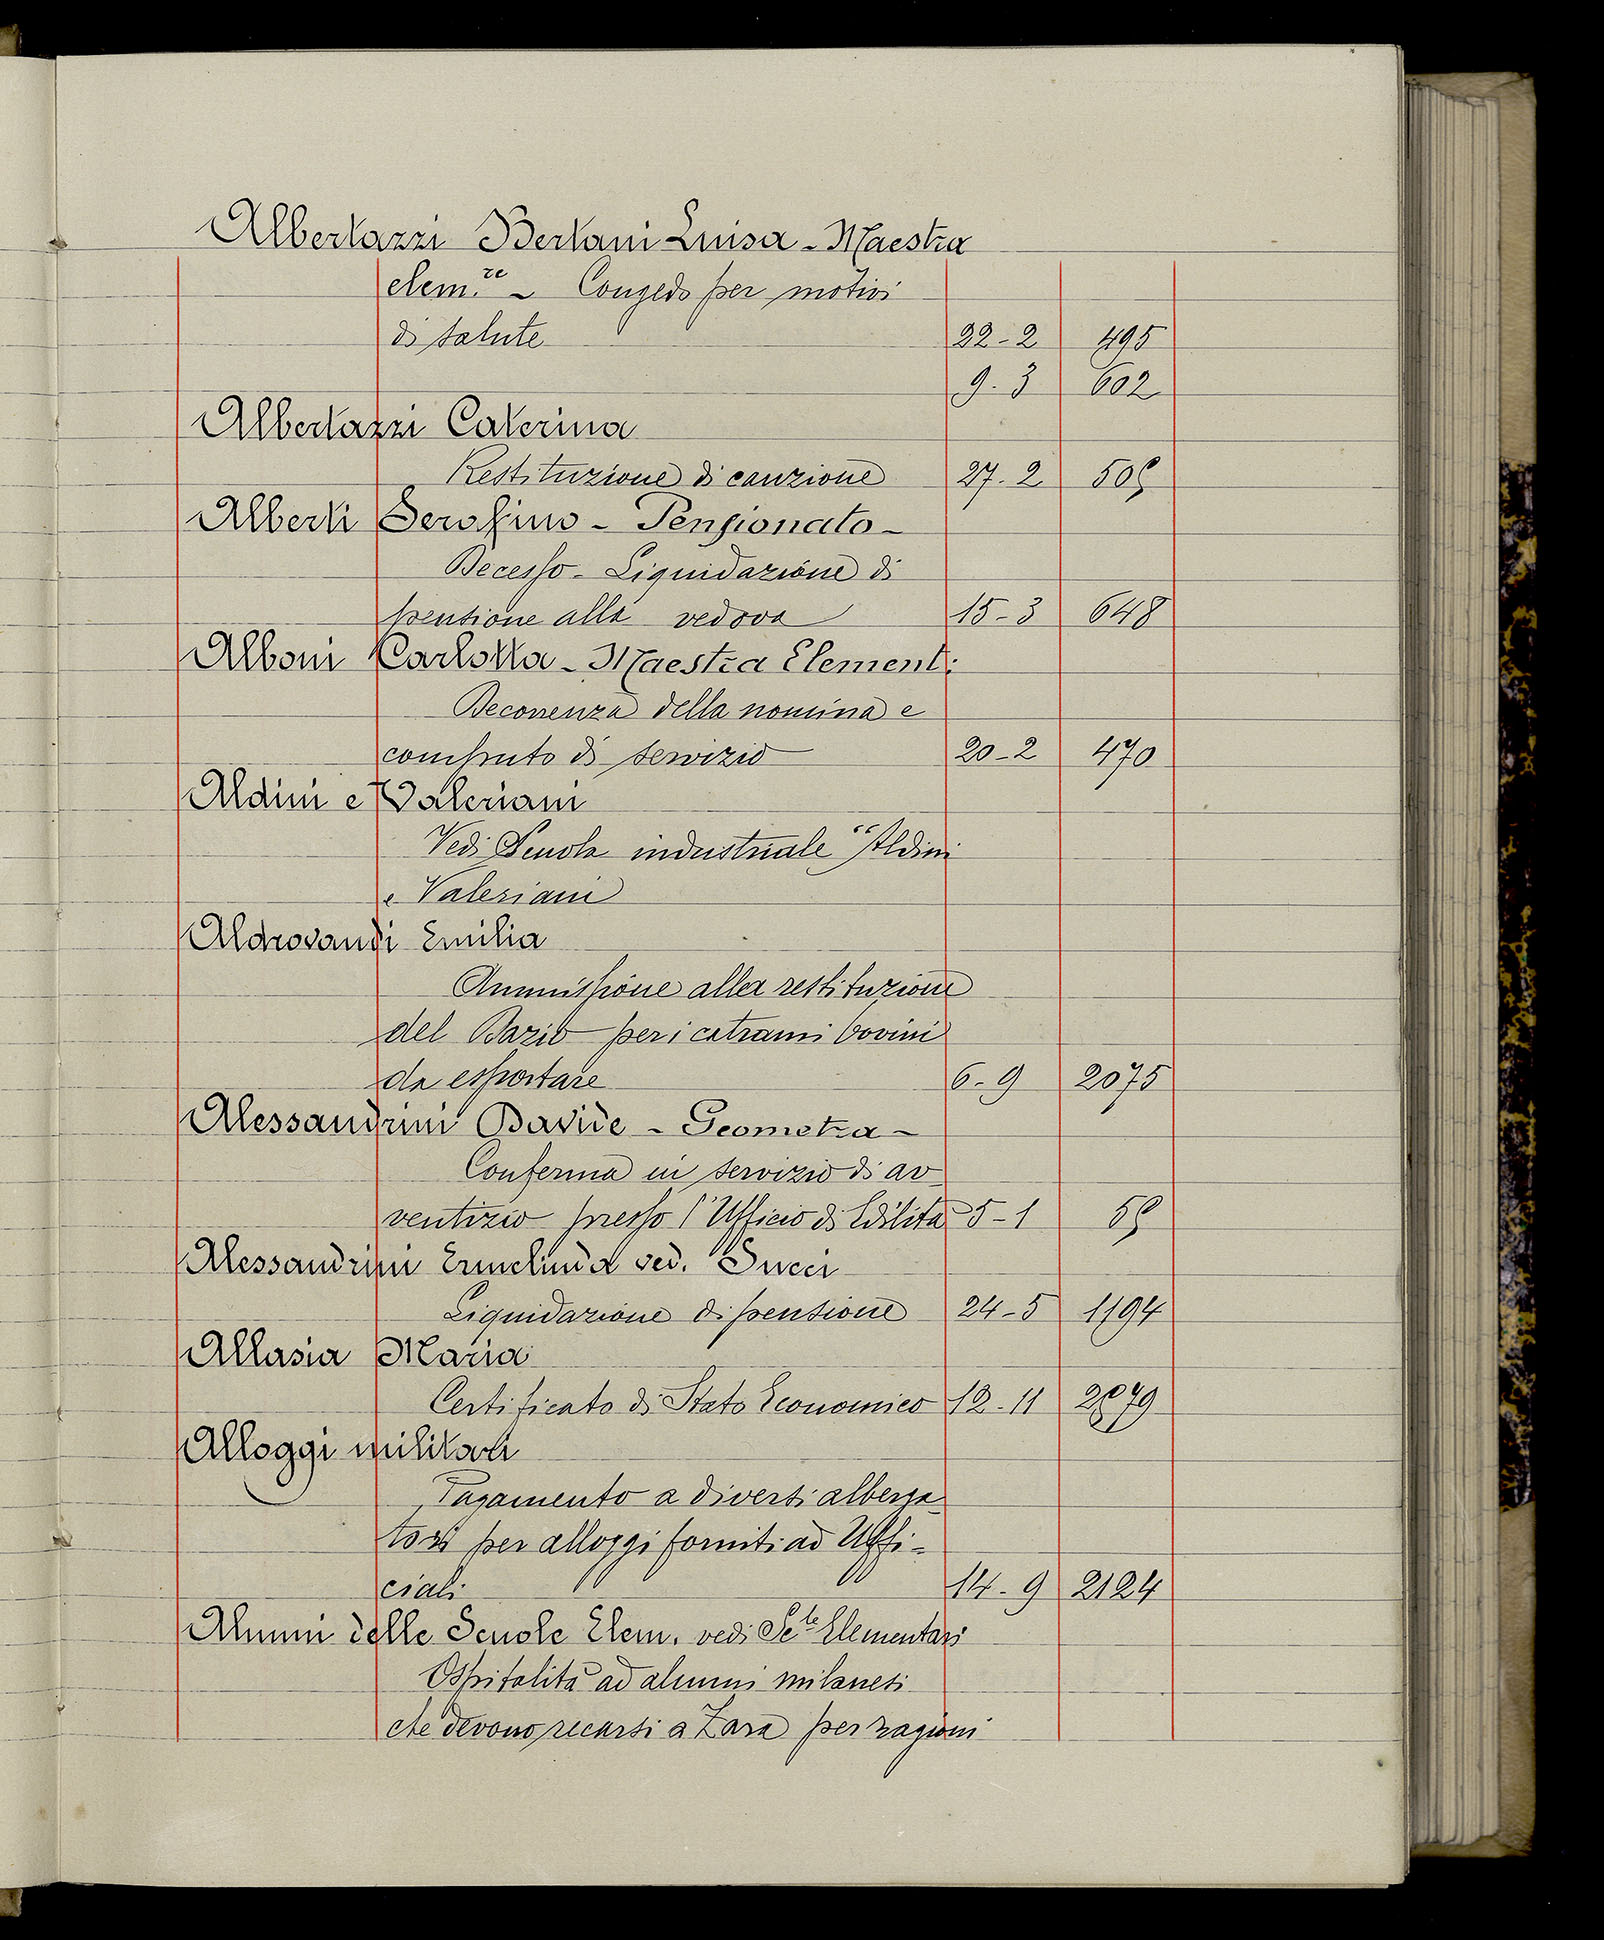 Albertazzi Bertani Luisa - Maestra
elem.re - Congedo per motivi
di salute 22-2 495
9. 3 602
Albertazzi Caterina
Restituzione di cauzione 27. 2 506
Alberti Serafino - Pensionato -
Decesso - Liquidazione di
pensione alla vedova 15-3 648
Alboni Carlotta - Maestra Element:
Decorrenza della nomina e
computo di servizio 20-2 470
Aldini e Valeriani
Vedi Scuola industriale "Aldini
e Valeriani
Aldrovandi Emilia
Ammissione alla restituzione
del Dazio per i catrami bovini
da esportare 6-9 2075
Alessandrini Davide - Geometra -
Conferma in servizio di av
ventizio presso l'Ufficio di Edilità 5-1
Alessandrini Ermelinda ved. Succi
Liquidazione di pensione 24-5 1194
Allasia Maria
Certificato di Stato Economico 12-11
Alloggi militari
Pagamento a diversi alberga
tori per alloggi forniti ad Uffi-
ciali 14-9 2124
Alunni delle Scuole Elem. vedi Sc.le Elementari
Ospitalità ad alunni milanesi
che devono recarsi a Zara per ragioni